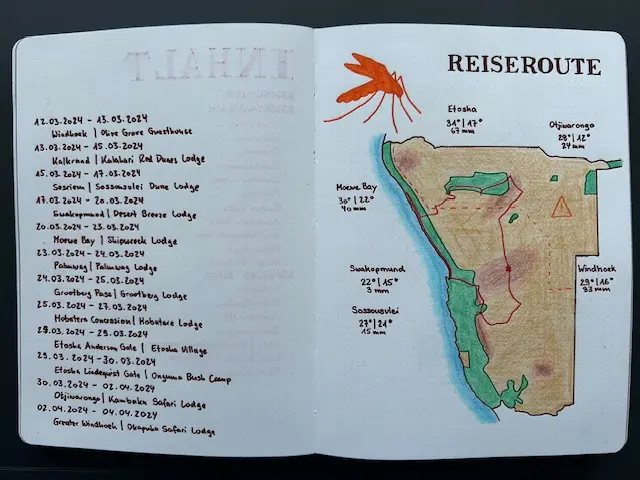 12.03.2024 - 13.03.2024
Windhoek | Olive Grove Guesthouse
13.03.2024 - 15.03.2024
Kalkrand | Kalahari Red Dunes Lodge
15.03.2024 - 17.03.2024
Sesriem | Sossusvlei Dune Lodge
17.03.2024 - 20.03.2024
Swakopmund | Desert Breeze Lodge
20.03.2024 - 23.03.2024
Moewe Bay | Shipwreck Lodge
23.03.2024 - 24.03.2024
Palmwag | Palmwag Lodge
24.03.2024 - 25.03.2024
Grootberg Pass | Grootberg Lodge
25.03.2024 - 27.03.2024
Hobatere Concession | Hobatere Lodge
28.03.2024 - 29.03.2024
Etosha Anderson Gate | Etosha Village
29.03.2024 - 30.03.2024
Etosha Lindequist Gate | Onguma Bush Camp
30.03.2024 - 02.04.2024
Otjiwarongo | Kambaku Safari Lodge
02.04.2024 - 04.04.2024
Greater Windhoek | Okapuka Safari Lodge
REISEROUTE
Etosha
31° | 17°
67 mm
Otjiwarongo
28° | 12°
24 mm
Moewe Bay
30° | 22°
40 mm
Swakopmund
22° | 15°
3 mm
Sossusvlei
27° | 21°
15 mm
Windhoek
29° | 16°
33 mm